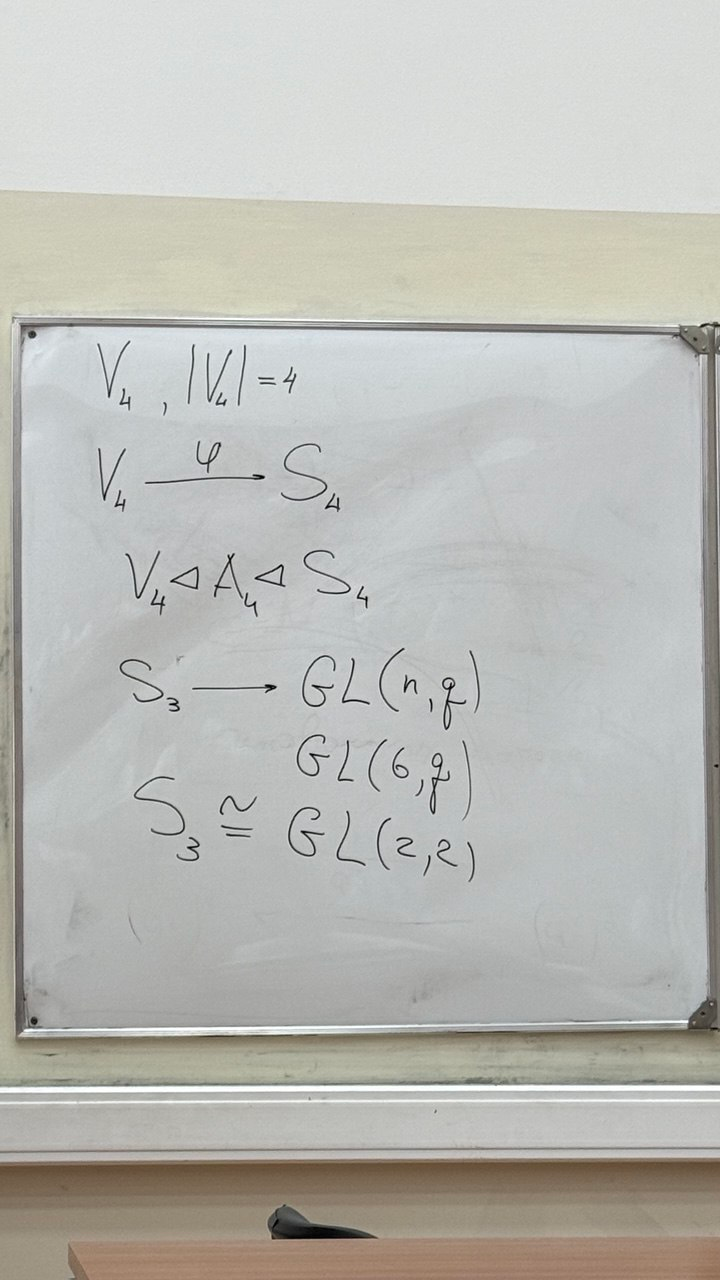 V₄ , |V₄| = 4
V₄ —φ→ S₄
V₄ ⊲ A₄ ⊲ S₄
S₃ ⟶ GL(n,q)
GL(6,q)
S₃ ≅ GL(2,2)